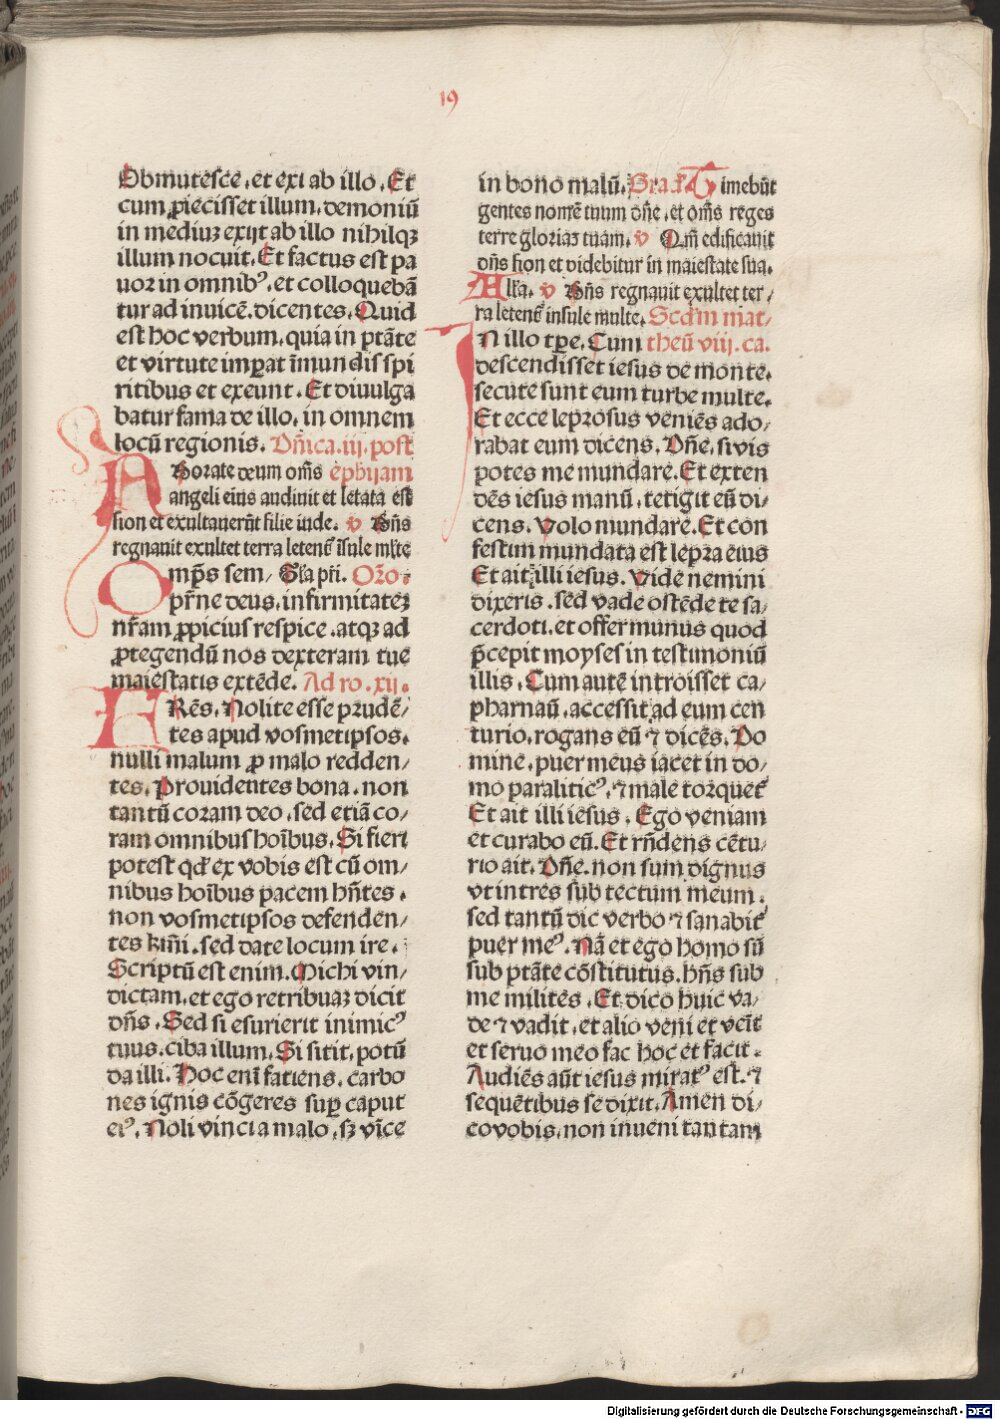 19
Obmutesce. et exi ab illo. Et
cum ꝓiecisset illum. demoniū
in mediuꝫ exijt ab illo nihilqꝫ
illum nocuit. Et factus est pa
uor in omnibꝰ. et colloquebā
tur ad inuicē. dicentes. Quid
est hoc verbum. quia in ptāte
et virtute imꝑat īmundis spi
ritibus et exeunt. Et diuulga
batur fama de illo. in omnem
locū regionis. Dñica. iij. post
Adorate deum om̄s ephijam
angeli eius audiuit et letata est
sion et exultauerūt filie iude. v Dñs
regnauit exultet terra letent᷑ īsule ml̄te
Omp̄s sem/ Gl̓a pr̄i. Or̄o.
pr̄ne deus. infirmitateꝫ
nr̄am ꝓpicius respice. atqꝫ ad
ꝓtegendū nos dexteram tue
maiestatis extēde. Ad ro. xij.
FRēs. Nolite esse prudē/
tes apud vosmetipsos.
nulli malum ꝓ malo redden/
tes. Prouidentes bona. non
tantū coram deo. sed etiā co/
ram omnibus hoībus. Si fieri
potest qd̓ ex vobis est cū om/
nibus hoībus pacem hñtes.
non vosmetipsos defenden/
tes km̄i. sed date locum ire.
Scriptū est enim. Michi vin/
dictam. et ego retribuaꝫ dicit
dñs. Sed si esurierit inimicꝰ
tuus. ciba illum. Si sitit. potū
da illi. Hoc enī faciens. carbo
nes ignis cōgeres suꝑ caput
eiꝰ. Noli vinci a malo. sꝫ vīce
in bono malū. Grad̓. Timebūt
gentes nomē tuum dñe. et om̄s reges
terre gloriaꝫ tuam. v Qm̄ edificauit
dñs sion et videbitur in maiestate sua.
All̓a. v Dñs regnauit exultet ter/
ra letent᷑ insule multe. Scd̓m mat/
IN illo tꝑe. Cum theū viij. ca.
descendisset iesus de monte.
secute sunt eum turbe multe.
Et ecce leprosus veniēs ado/
rabat eum dicens. Dñe. si vis
potes me mundare. Et exten
dēs iesus manū. tetigit eū di/
cens. Volo mundare. Et con
festim mundata est lepra eius
Et ait illi iesus. Vide nemini
dixeris. sed vade ostēde te sa/
cerdoti. et offer munus quod
p̄cepit moyses in testimoniū
illis. Cum autē introisset ca/
pharnaū. accessit ad eum cen
turio. rogans eū ⁊ dicēs. Do
mine. puer meus iacet in do/
mo paraliticꝰ. ⁊ male torquet᷑
Et ait illi iesus. Ego veniam
et curabo eū. Et rñdens cētu/
rio ait. Dñe. non sum dignus
vt intres sub tectum meum.
sed tantū dic verbo ⁊ sanabit᷑
puer meꝰ. Nā et ego homo sū
sub ptāte cōstitutus. hñs sub
me milites. Et dico huic va/
de ⁊ vadit. et alio veni et veīt
et seruo meo fac hoc et facit.
Audiēs aūt iesus miratꝰ est. ⁊
sequētibus se dixit. Amen di/
co vobis. non inueni tantam
Digitalisierung gefördert durch die Deutsche Forschungsgemeinschaft - DFG